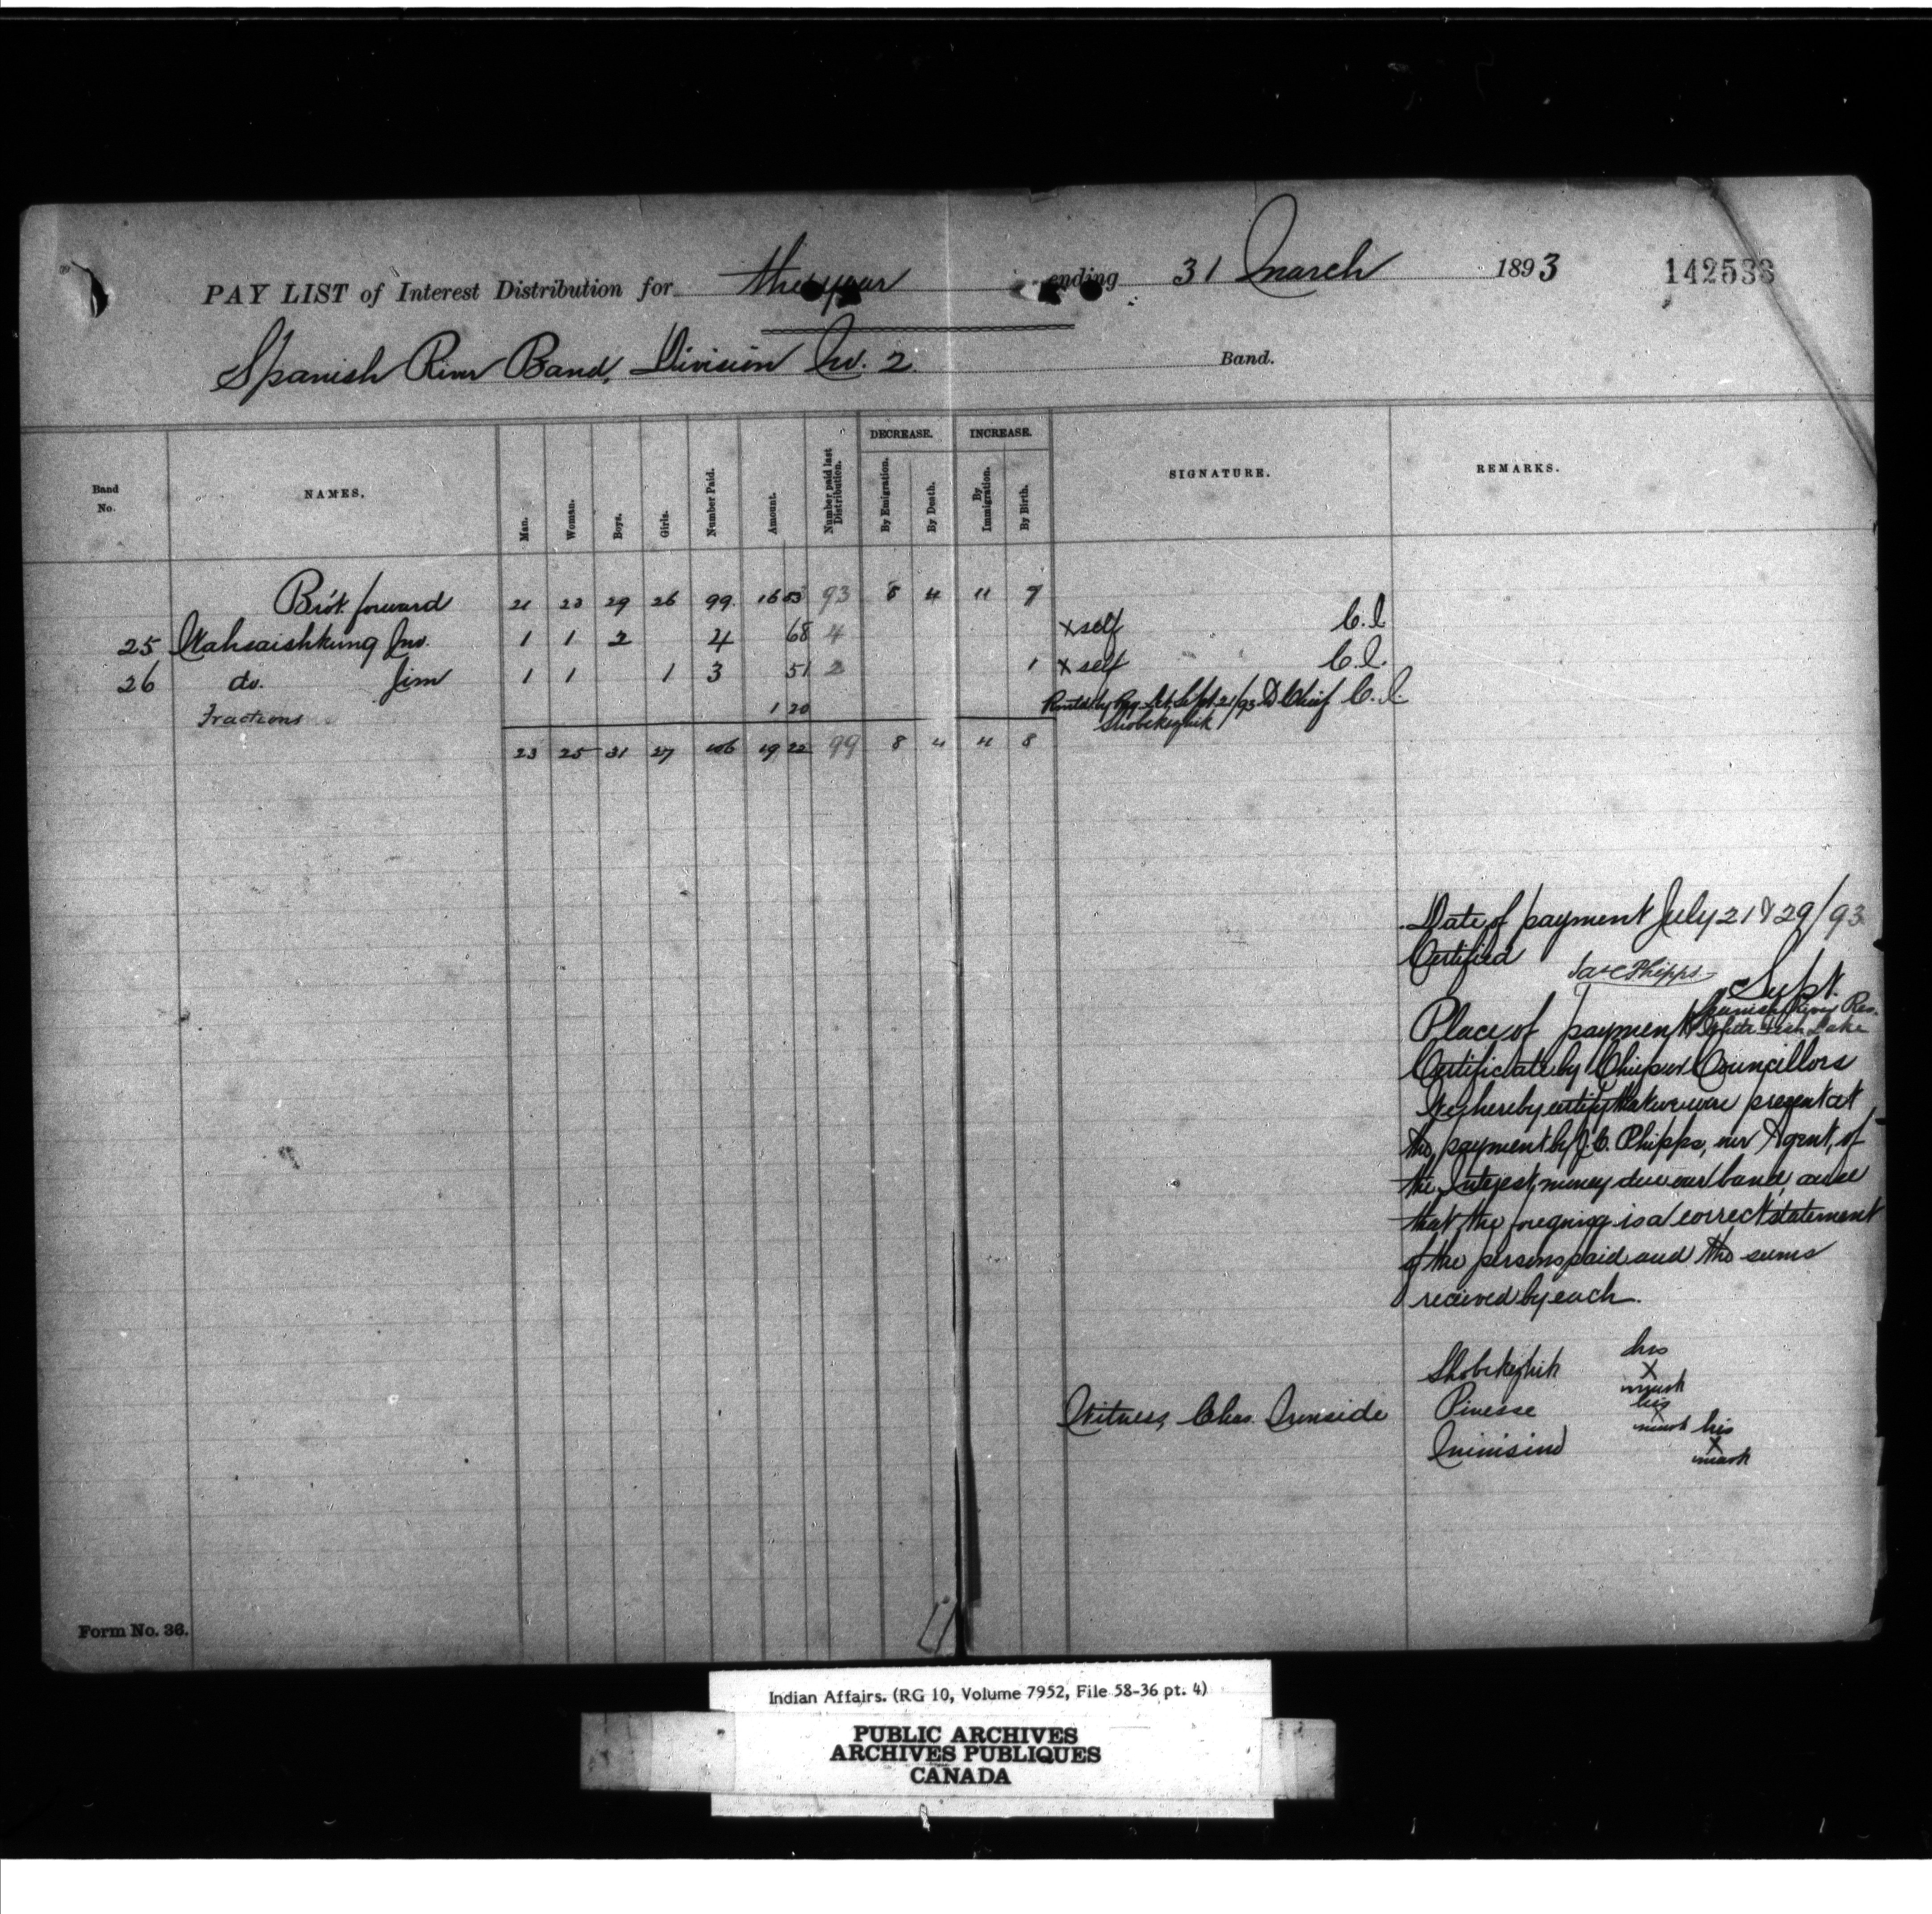 PAY LIST of Interest Distribution for the year ending 31 March 1893 142533
Spanish River Band, Division No. 2 Band.
Band No. NAMES. Man. Woman. Boys. Girls. Number Paid. Amount. Number paid last Distribution. DECREASE. By Emigration. By Death. INCREASE. By Immigration. By Birth. SIGNATURE. REMARKS.
Bro't forward 21 23 29 26 99 16 83 93 8 4 11 7
25 Wahsaishkung Jno. 1 1 2 4 68 4 X self C.I.
26 do. Jim 1 1 1 3 51 2 1 X self C.I.
Fractions 1 20 Sept 21/93 Chief C.I.
Shobekezhik
23 25 31 27 106 19 22 99 8 4 11 8
Date of payment July 21 & 29/93
Certified
Jas C Phipps
Supt.
Place of payment Spanish River Res.
& White Fish Lake
Certificate by Chief or Councillors
We hereby certify that we were present at
the payment by J.C. Phipps, our Agent, of
the Interest money due our band, and
that the foregoing is a correct statement
of the persons paid and the sums
received by each.
Shobekezhik his X mark
Witness, Chas. Ironside Pinesse his X mark
his X mark
Form No. 36.
Indian Affairs. (RG 10, Volume 7952, File 58-36 pt. 4)
PUBLIC ARCHIVES
ARCHIVES PUBLIQUES
CANADA